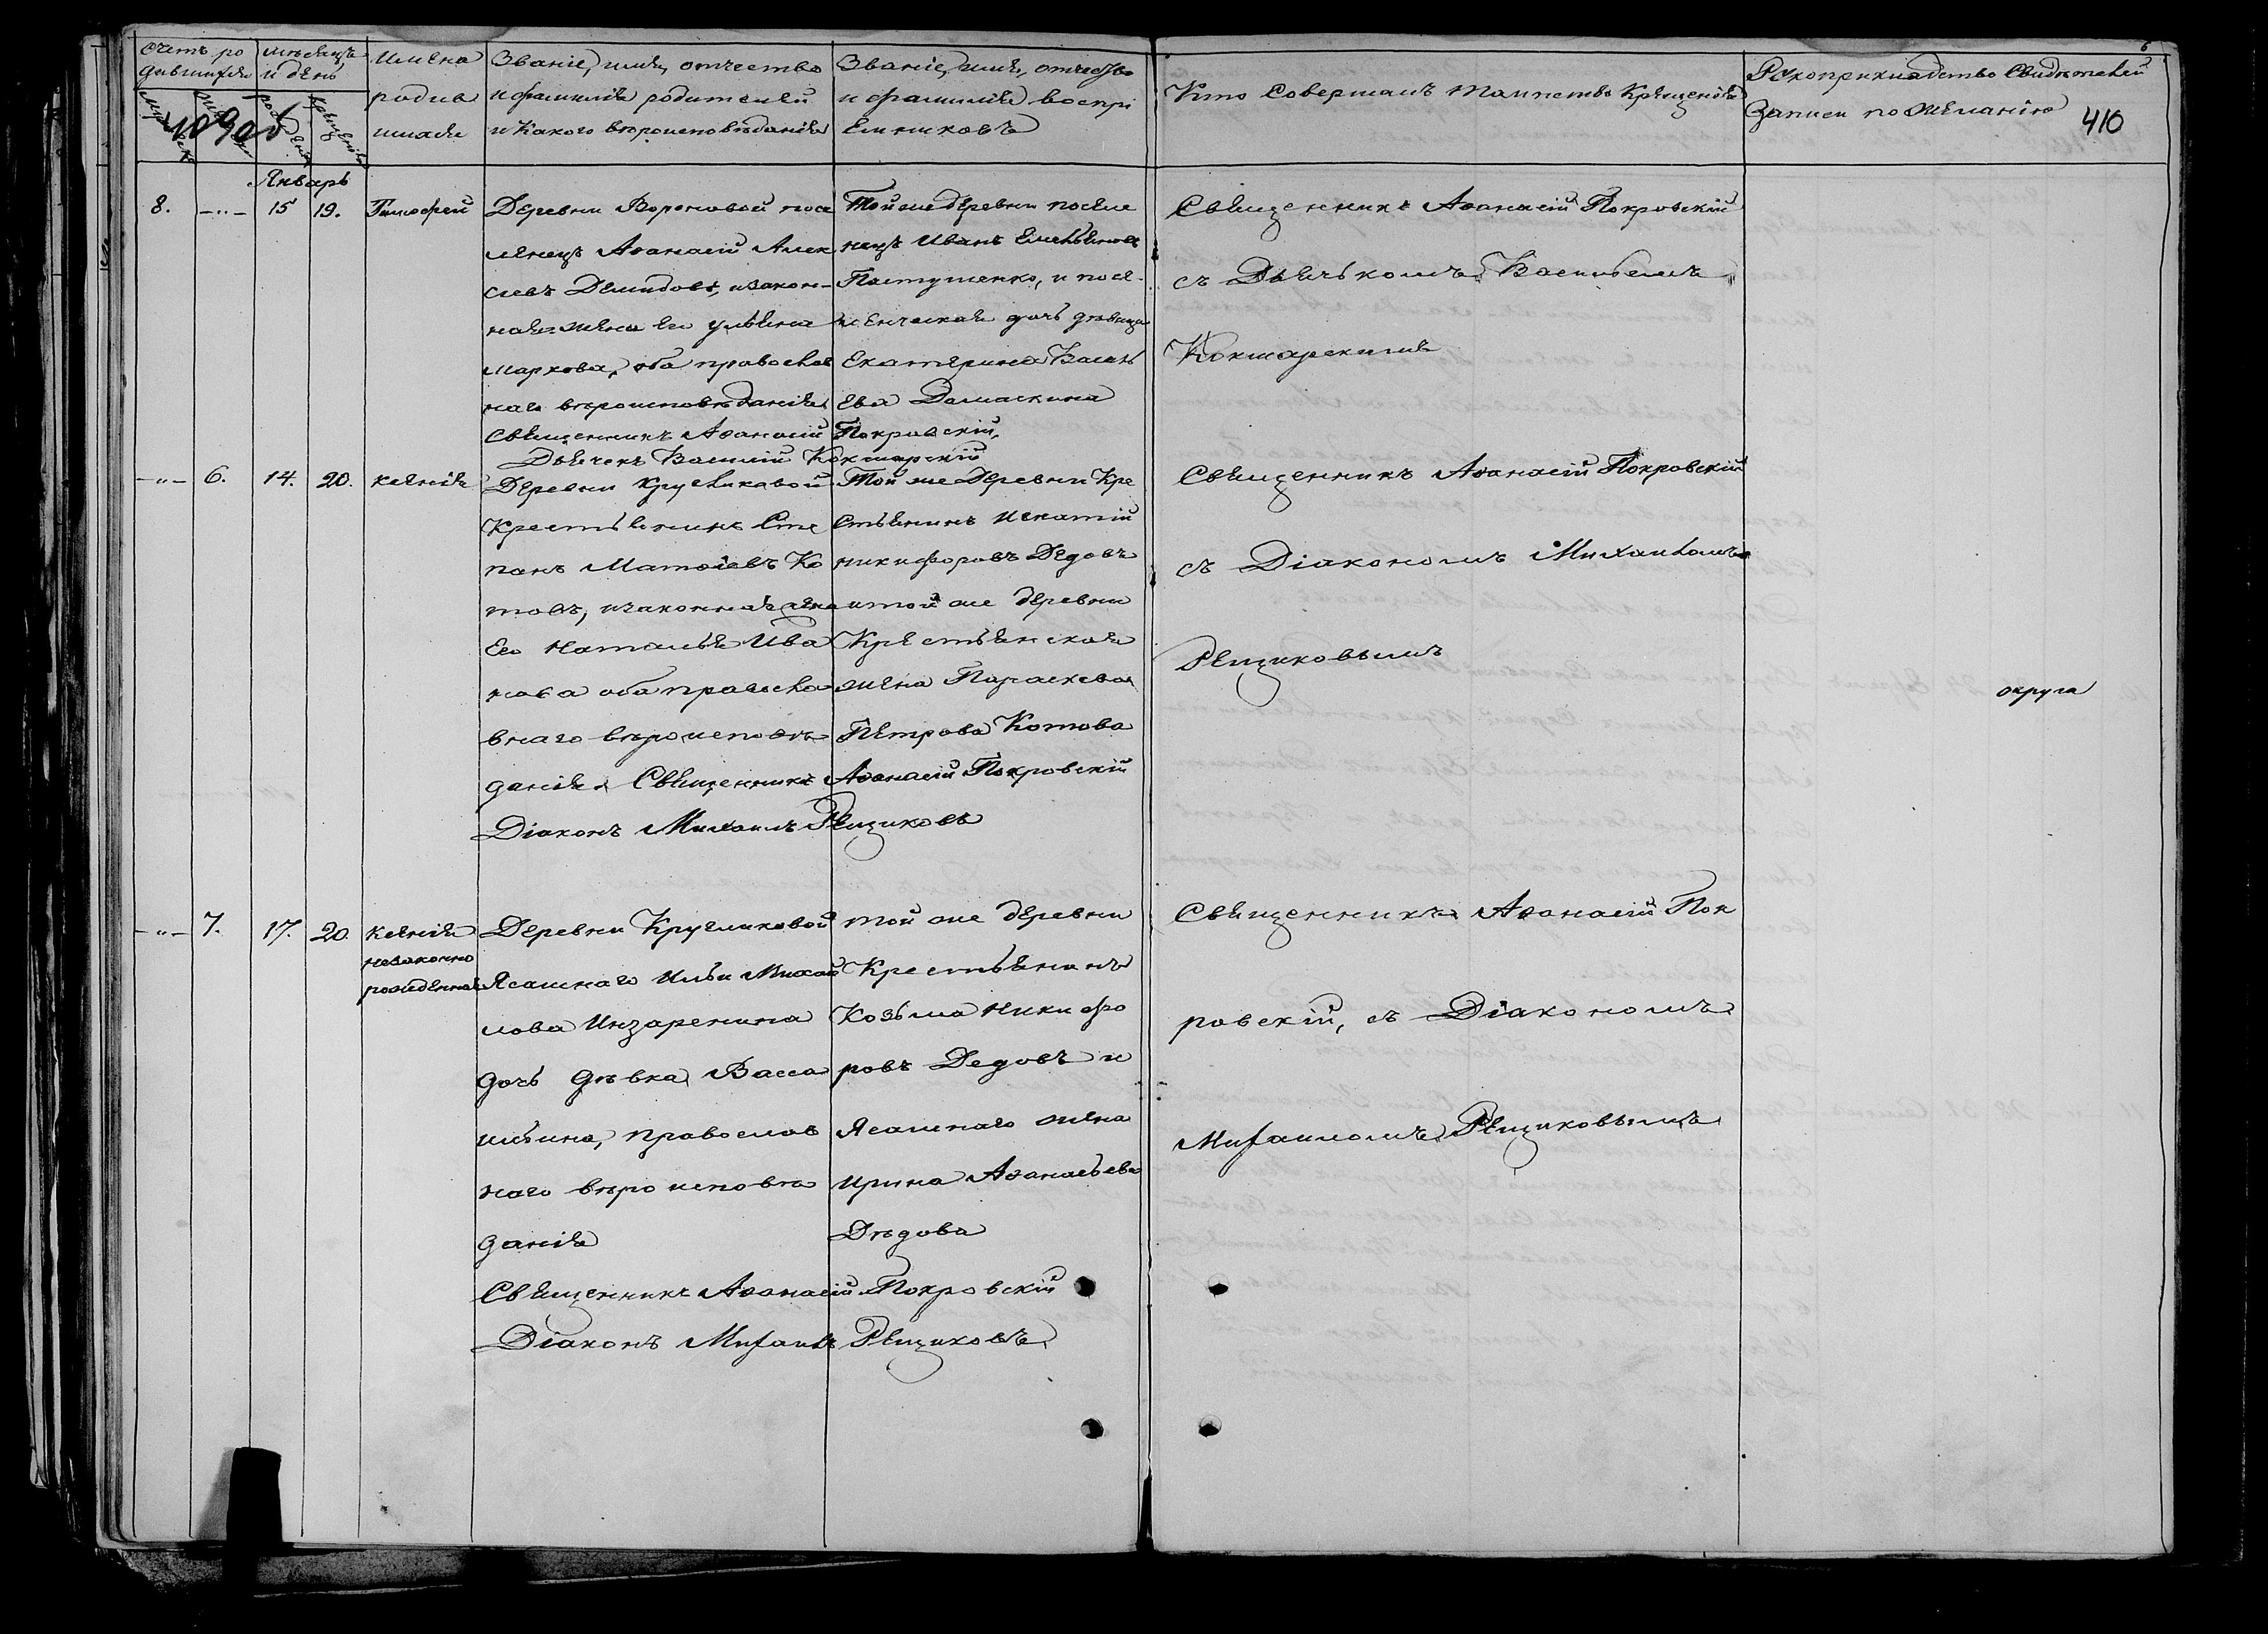 Счетъ ро
дившихся
мѣсяцъ
и день
Имена
родив
шихся
Званіе, имя, отчество
и фамилія родителей
и какого вѣроисповѣданія
Званіе, имя, отчество
и фамилія воспрі
емниковъ
Кто совершалъ таинство крещенія
Рукоприкладство свидѣтелей
записи по желанію
6
410
409об
Январь
8. 15 19. Тимофей
Деревни Вороновой посе
ленецъ Аѳанасій Алек
сѣевъ Демидовъ, и закон-
ная жена его Ульяна
Маркова, оба православ
наго вѣроисповѣданія
Священникъ Аѳанасій Покровскій,
Дьячекъ Василій Кокшарскій
Той же деревни поселе
нецъ Иванъ Емельяновъ
Пастушенко, и посе-
ленческая дочь дѣвица
Екатерина Василь
ева Домаскина
Священникъ Аѳанасій Покровскій
съ Дьячькомъ Василіемъ
Кокшарскимъ
6. 14. 20. Ксенія
Деревни Кругликовой
Крестьянинъ Сте
панъ Матѳіевъ Ко
товъ, и законная жена
его Наталья Ива
нова оба правосла
внаго вѣроисповѣ
данія. Священникъ Аѳанасій Покровскій
Діаконъ Михаилъ Рещиковъ
Той же деревни Кре
стьянинъ Игнатій
Никифоровъ Дедовъ
и той же деревни
Крестьянская
жена Параскева
Петрова Котова
Священникъ Аѳанасій Покровскій
съ Діакономъ Михаиломъ
Рещиковымъ
округа
7. 17. 20. Ксенія
незаконно
рожденная
Деревни Кругликовой
Ясашнаго Ильи Михай
лова Инзаренина
дочь дѣвка Васса
Ильина, православ
наго вѣроисповѣ
данія
Священникъ Аѳанасій Покровскій
Діаконъ Михаилъ Рещиковъ
той же деревни
Крестьянинъ
Козьма Никифо
ровъ Дедовъ и
Ясашнаго жена
Ирина Аѳанасьева
Дѣдова
Священникъ Аѳанасій Пок
ровскій, съ Діакономъ
Михаиломъ Рещиковымъ